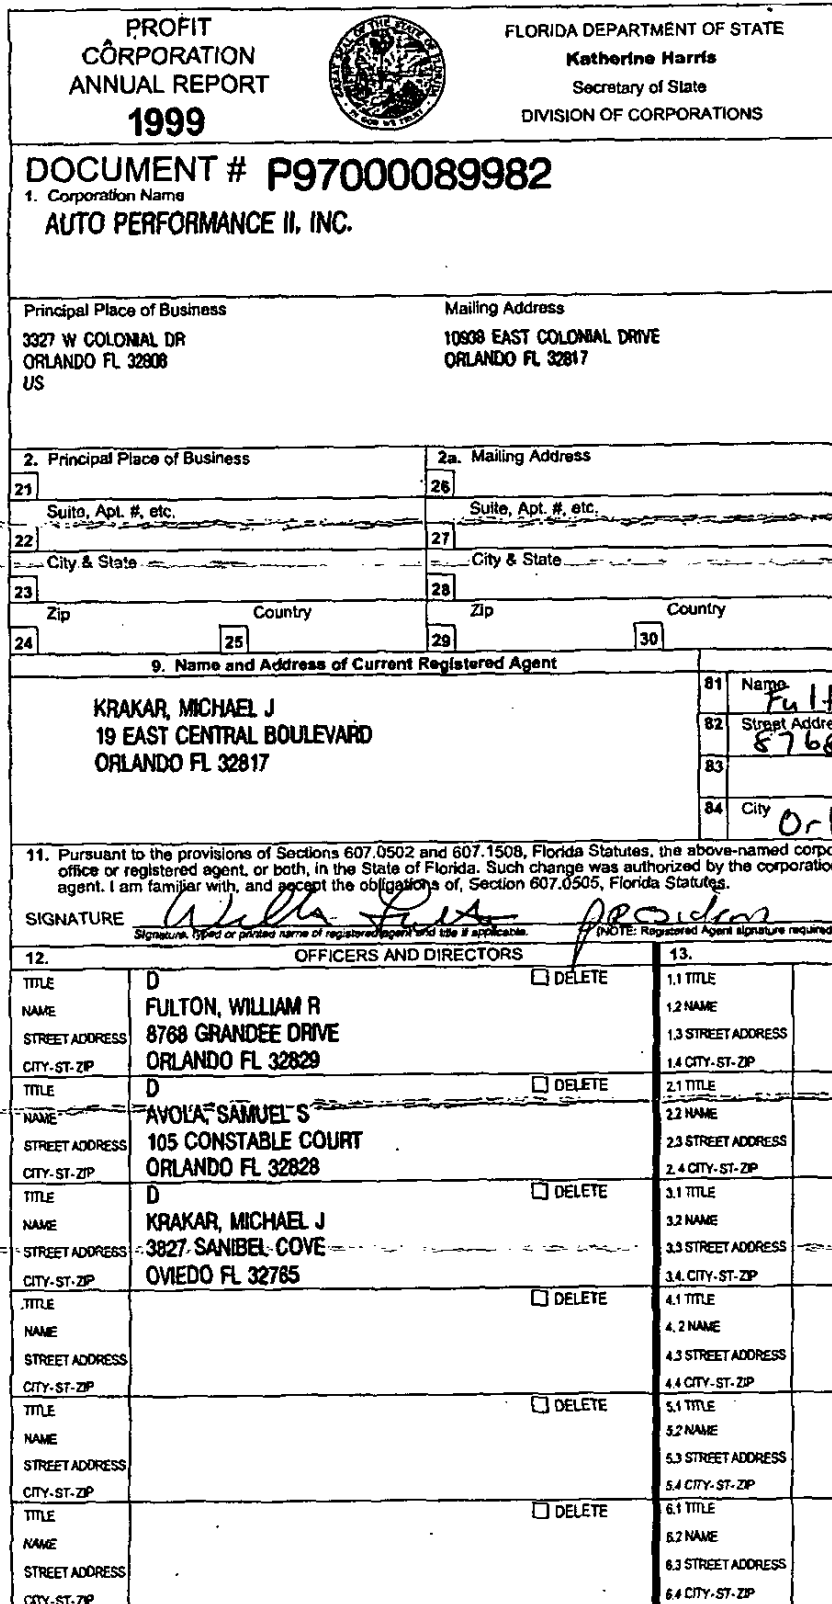 PROFIT
CORPORATION
ANNUAL REPORT
1999
FLORIDA DEPARTMENT OF STATE
Katherine Harris
Secretary of State
DIVISION OF CORPORATIONS
DOCUMENT # P97000089982
1. Corporation Name
AUTO PERFORMANCE II, INC.
Principal Place of Business
3327 W COLONIAL DR
ORLANDO FL 32808
US
Mailing Address
10938 EAST COLONIAL DRIVE
ORLANDO FL 32817
2. Principal Place of Business
21
Suite, Apt. #, etc.
22
City & State
23
Zip Country
24 25
2a. Mailing Address
26
Suite, Apt. #, etc.
27
City & State
28
Zip Country
29 30
9. Name and Address of Current Registered Agent
KRAKAR, MICHAEL J
19 EAST CENTRAL BOULEVARD
ORLANDO FL 32817
81 Name
Fult
82 Street Addre
8768
83
84 City Orl
11. Pursuant to the provisions of Sections 607.0502 and 607.1508, Florida Statutes, the above-named corpo
office or registered agent, or both, in the State of Florida. Such change was authorized by the corporation
agent. I am familiar with, and accept the obligations of, Section 607.0505, Florida Statutes.
SIGNATURE
Signature, typed or printed name of registered agent and title if applicable. (NOTE: Registered Agent signature required
12. OFFICERS AND DIRECTORS
TITLE D DELETE
NAME FULTON, WILLIAM R
STREET ADDRESS 8768 GRANDEE DRIVE
CITY-ST-ZIP ORLANDO FL 32829
TITLE D DELETE
NAME AVOLA, SAMUEL S
STREET ADDRESS 105 CONSTABLE COURT
CITY-ST-ZIP ORLANDO FL 32828
TITLE D DELETE
NAME KRAKAR, MICHAEL J
STREET ADDRESS 3827 SANIBEL COVE
CITY-ST-ZIP OVIEDO FL 32765
TITLE DELETE
NAME
STREET ADDRESS
CITY-ST-ZIP
TITLE DELETE
NAME
STREET ADDRESS
CITY-ST-ZIP
TITLE DELETE
NAME
STREET ADDRESS
CITY-ST-ZIP
13.
1.1 TITLE
1.2 NAME
1.3 STREET ADDRESS
1.4 CITY-ST-ZIP
2.1 TITLE
2.2 NAME
2.3 STREET ADDRESS
2.4 CITY-ST-ZIP
3.1 TITLE
3.2 NAME
3.3 STREET ADDRESS
3.4. CITY-ST-ZIP
4.1 TITLE
4.2 NAME
4.3 STREET ADDRESS
4.4 CITY-ST-ZIP
5.1 TITLE
5.2 NAME
5.3 STREET ADDRESS
5.4 CITY-ST-ZIP
6.1 TITLE
6.2 NAME
6.3 STREET ADDRESS
6.4 CITY-ST-ZIP